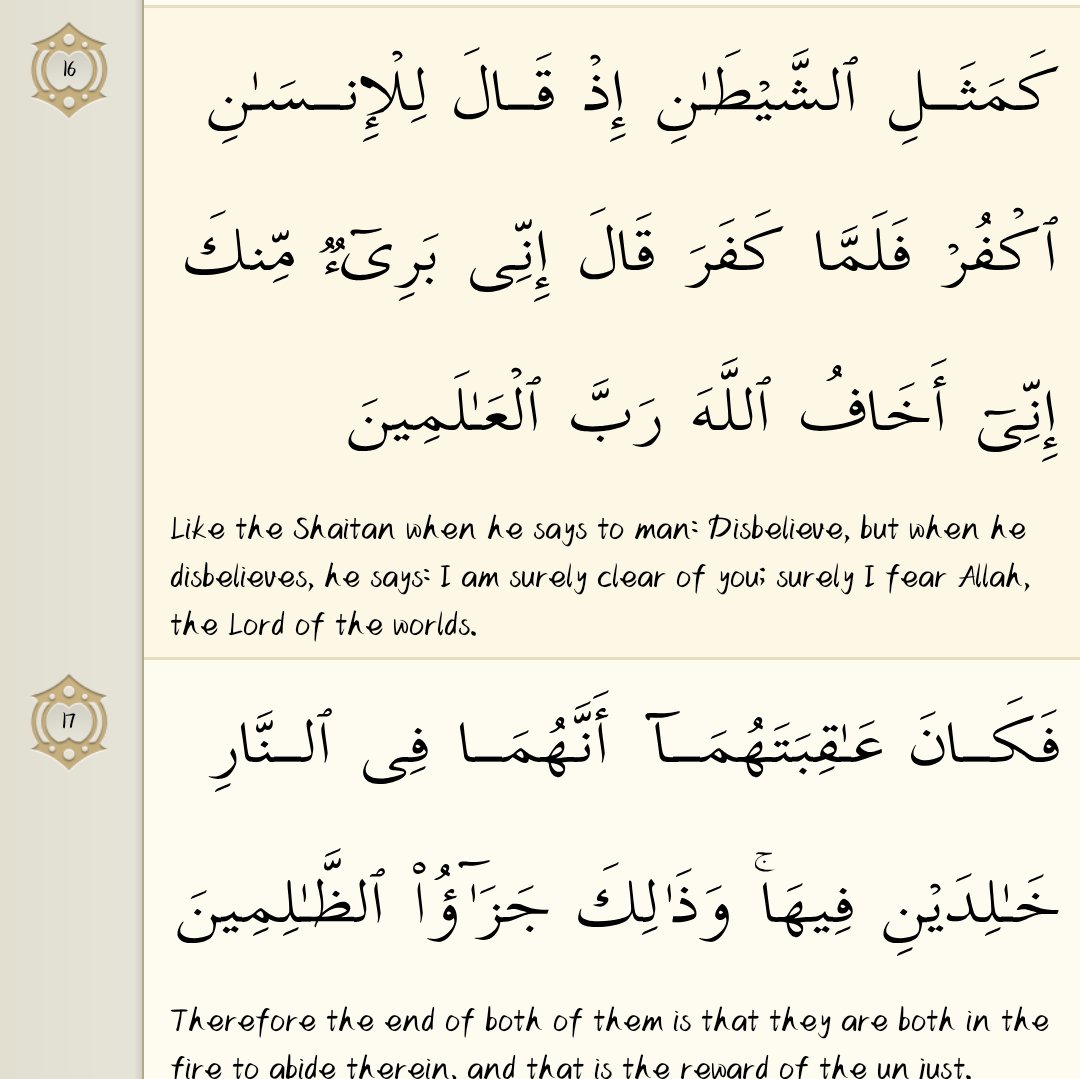 16
كَمَثَـــلِ ٱلشَّيْطَـٰنِ إِذْ قَـــالَ لِلْإِنـــسَـٰنِ
ٱكْفُرْ فَلَمَّا كَفَرَ قَالَ إِنِّى بَرِىٓءٌ مِّنكَ
إِنِّىٓ أَخَافُ ٱللَّهَ رَبَّ ٱلْعَـٰلَمِينَ
Like the Shaitan when he says to man: Disbelieve, but when he
disbelieves, he says: I am surely clear of you; surely I fear Allah,
the Lord of the worlds.
17
فَكَـــانَ عَـٰقِبَتَهُمَـــآ أَنَّهُمَـــا فِى ٱلـــنَّارِ
خَـٰلِدَيْنِ فِيهَا ۚ وَذَٰلِكَ جَزَـٰٓؤُا۟ ٱلظَّـٰلِمِينَ
Therefore the end of both of them is that they are both in the
fire to abide therein, and that is the reward of the un just.